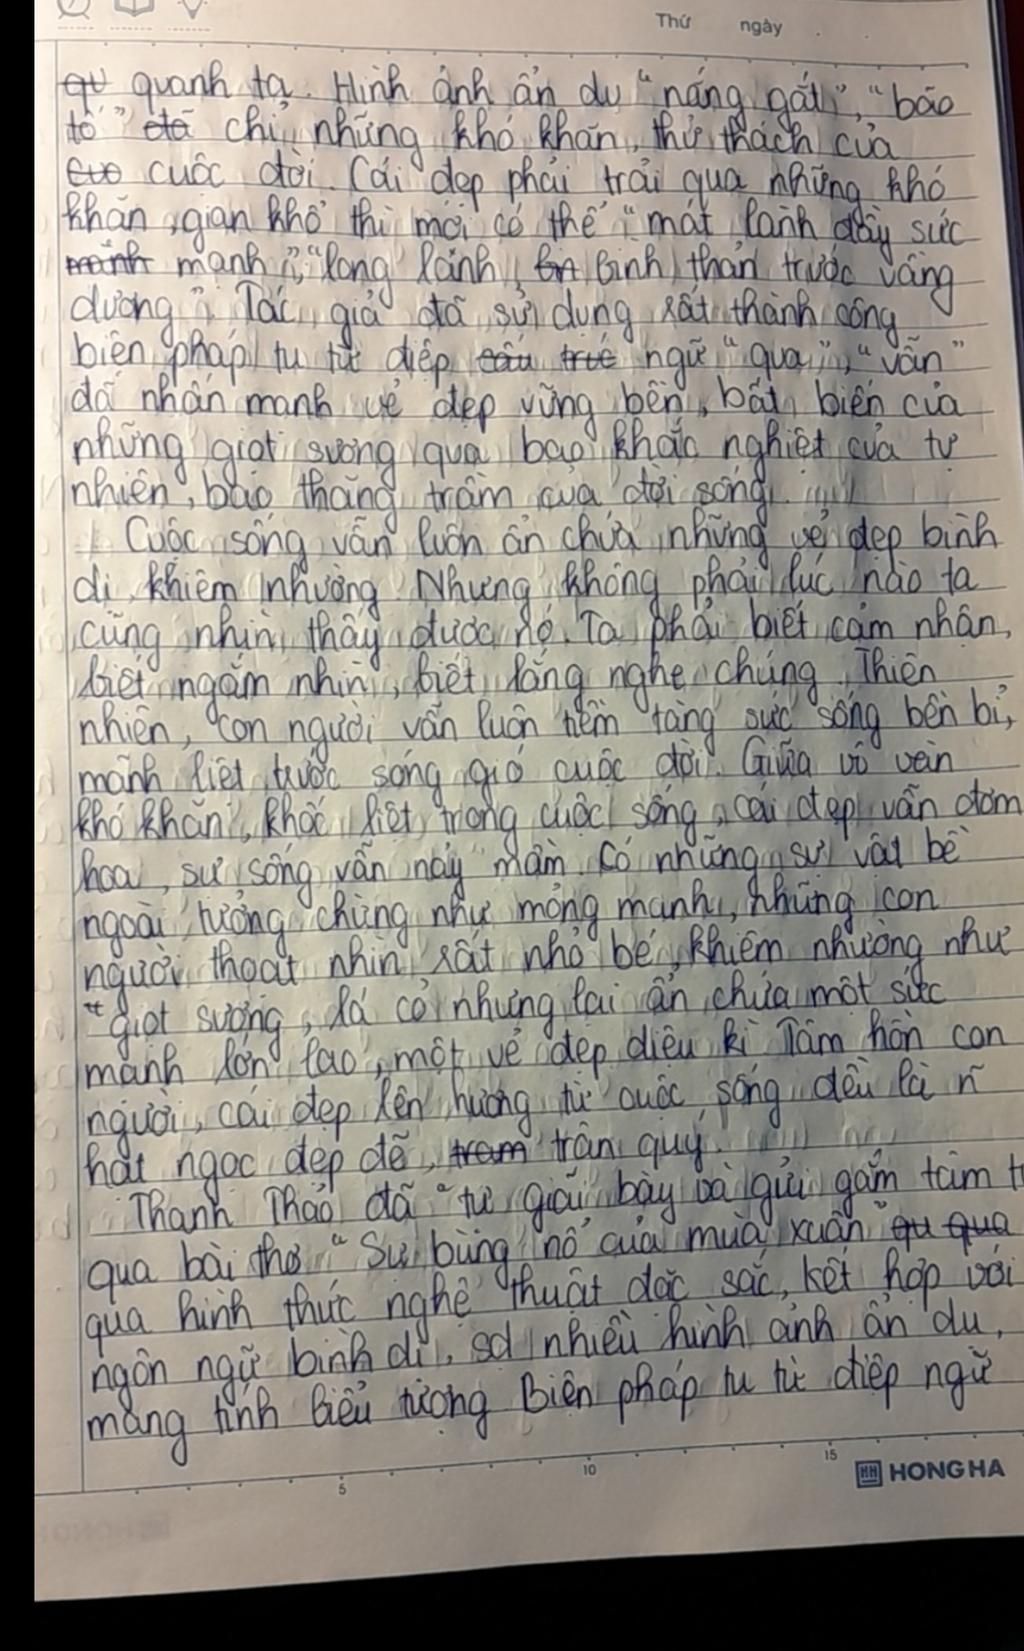 Thứ ngày
qu quanh ta. Hình ảnh ẩn dụ "nắng gắt", "bão
tố" đã chỉ những khó khăn, thử thách của
cuo cuộc đời. Cái đẹp phải trải qua những khó
khăn, gian khổ thì mới có thể "mát lành đầy sức
mành mạnh", "long lanh, bìn bình thản trước vầng
dương". Tác giả đã sử dụng rất thành công
biện pháp tu từ điệp cấu trúc ngữ "qua", "vẫn"
đã nhấn mạnh vẻ đẹp vững bền, bất biến của
những giọt sương qua bao khắc nghiệt của tự
nhiên, bao thăng trầm của đời sống.
Cuộc sống vẫn luôn ẩn chứa những vẻ đẹp bình
dị, khiêm nhường. Nhưng không phải lúc nào ta
cũng nhìn thấy được nó. Ta phải biết cảm nhận,
biết ngắm nhìn, biết lắng nghe chúng. Thiên
nhiên, con người vẫn luôn tiềm tàng sức sống bền bỉ,
mãnh liệt trước sóng gió cuộc đời. Giữa vô vàn
khó khăn, khốc liệt trong cuộc sống, cái đẹp vẫn đơm
hoa, sự sống vẫn nảy mầm. Có những sự vật bề
ngoài tưởng chừng như mỏng manh, những con
người thoạt nhìn rất nhỏ bé, khiêm nhường như
"giọt sương, lá cỏ nhưng lại ẩn chứa một sức
mạnh lớn lao, một vẻ đẹp diệu kì. Tâm hồn con
người, cái đẹp lên hương từ cuộc sống đều là n
hạt ngọc đẹp đẽ, tram trân quý.
Thanh Thảo đã "tự giãi bày và gửi gắm tâm t
qua bài thơ "Sự bùng nổ của mùa xuân" qu qua
qua hình thức nghệ thuật đặc sắc, kết hợp với
ngôn ngữ bình dị, sd nhiều hình ảnh ẩn dụ,
mang tính biểu tượng. Biện pháp tu từ điệp ngữ
5 10 15
HH HONG HA